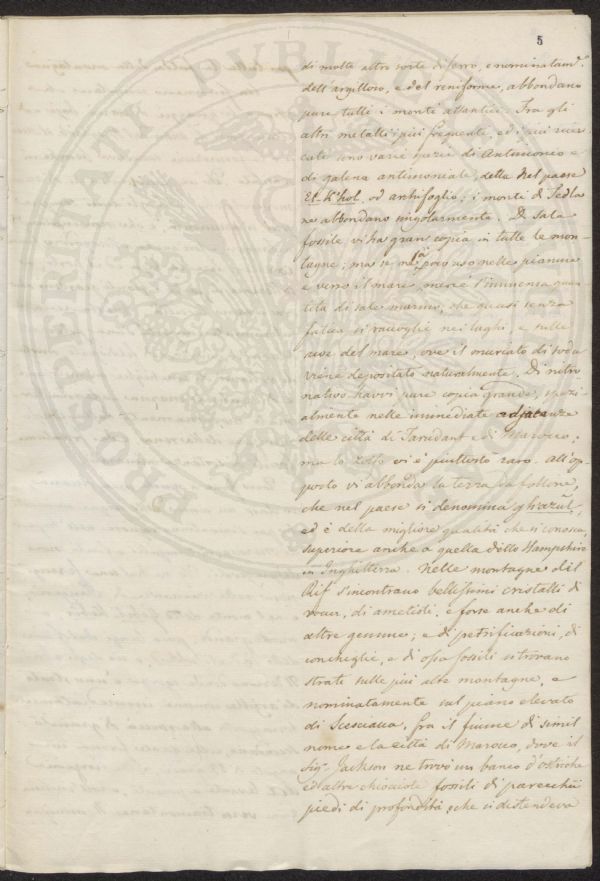 5
di molte altre sorte di ferro, e nominatam.e
dell'argilloso, e del reniforme, abbondano
pure tutti i monti atlantici. Fra gli
altri metalli i più frequenti, ed i più ricer-
cati sono varie spezie di Antimonio e
di galena antimoniale, detta nel paese
El-K'hol, od antifoglio; i monti di Sedla
ne abbondano singolarmente. Di Sale
fossile vi ha gran copia in tutte le mon-
tagne; ma se ne fa poco uso nelle pianure
e verso il mare, mercè l'immensa quan-
tità di sale marino, che quasi senza
fatica si raccoglie nei laghi, e sulle
rive del mare, ove il muriato di soda
viene depositato naturalmente. Di nitro
nativo havvi pure copia grande, spezi-
almente nelle immediate adjacenze
delle città di Tarudant e di Marocco;
ma lo Zolfo vi è piuttosto raro. All'op-
posto vi abbonda la terra da follone,
che nel paese si denomina ghazùl,
ed è della migliore qualità che si conosca,
superiore anche a quella dello Hampshire
in Inghilterra. Nelle montagne del
Rif s'incontrano bellissimi cristalli di
rocca, di ametisti, e forse anche di
altre gemme; e di petrificazioni, di
conchiglie, e di ossa fossili si trovano
strati sulle più alte montagne, e
nominatamente sul piano elevato
di Scesciaua, fra il fiume di simil
nome e la città di Marocco, dove il
Sig. Jackson ne trovò un banco d'ostriche
ed altre chiocciole fossili di parecchii
piedi di profondità, che si distendeva
PROSPERITATI PVBLICAE